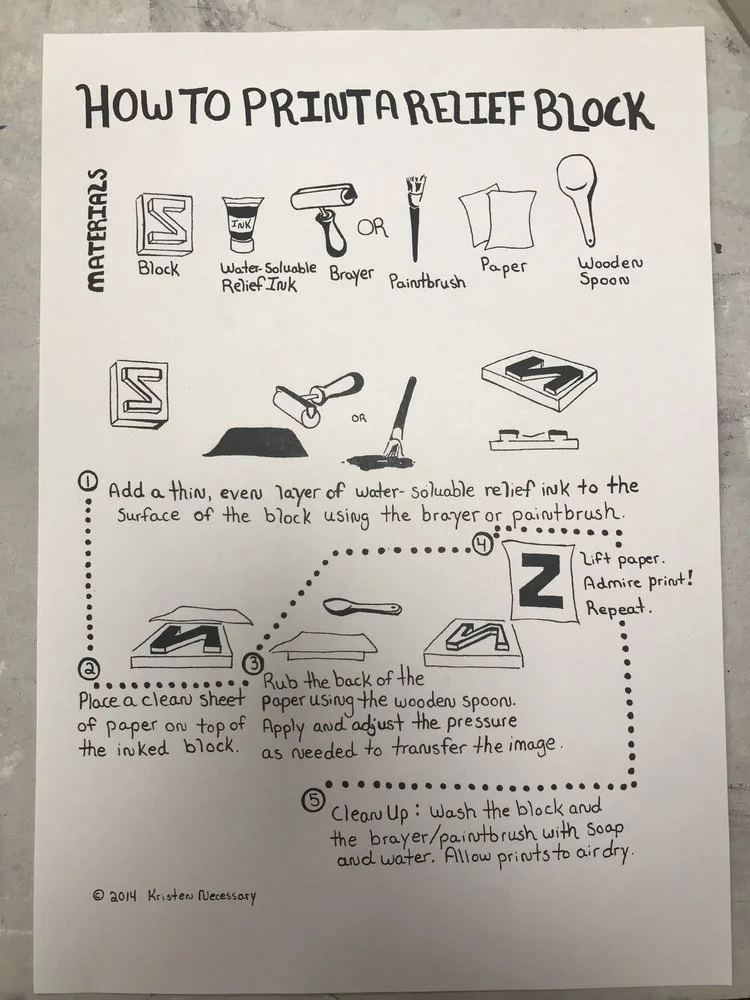 HOW TO PRINT A RELIEF BLOCK
MATERIALS
INK
OR
Block
Water-Soluable
Relief Ink
Brayer
Paintbrush
Paper
Wooden
Spoon
OR
1 Add a thin, even layer of water-soluable relief ink to the
surface of the block using the brayer or paintbrush.
2
Place a clean sheet
of paper on top of
the inked block.
3 Rub the back of the
paper using the wooden spoon.
Apply and adjust the pressure
as needed to transfer the image.
4
Z
Lift paper.
Admire print!
Repeat.
5 Clean Up: Wash the block and
the brayer/paintbrush with soap
and water. Allow prints to air dry.
© 2014 Kristen Necessary